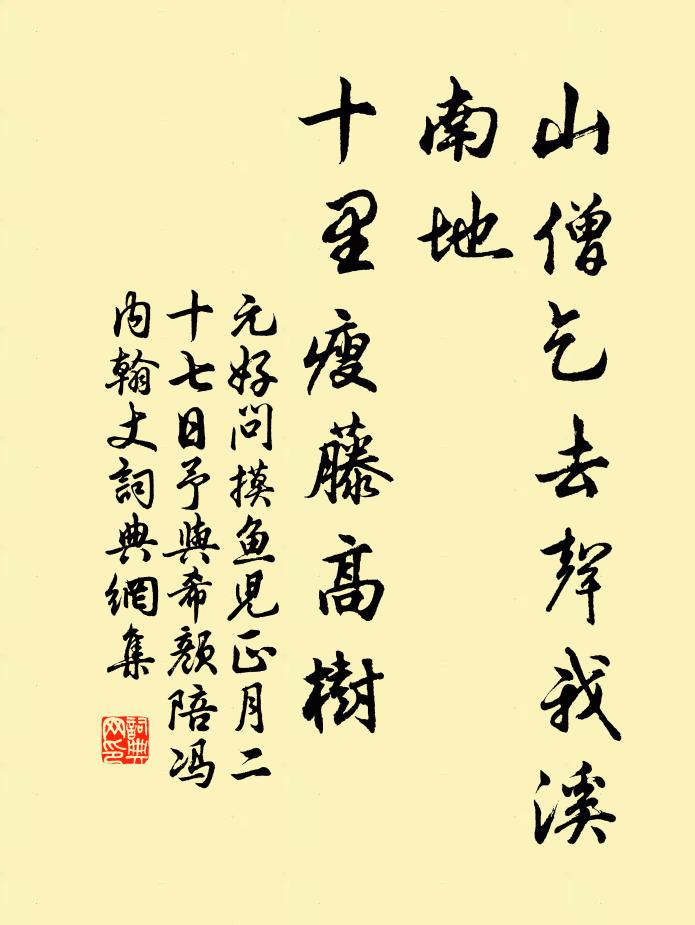 山僧乞去聲我溪
南地
十里瘦藤高樹
元好問摸鱼児正月二
十七日予與希顏陪冯
内翰丈詞典網集
詞典网印